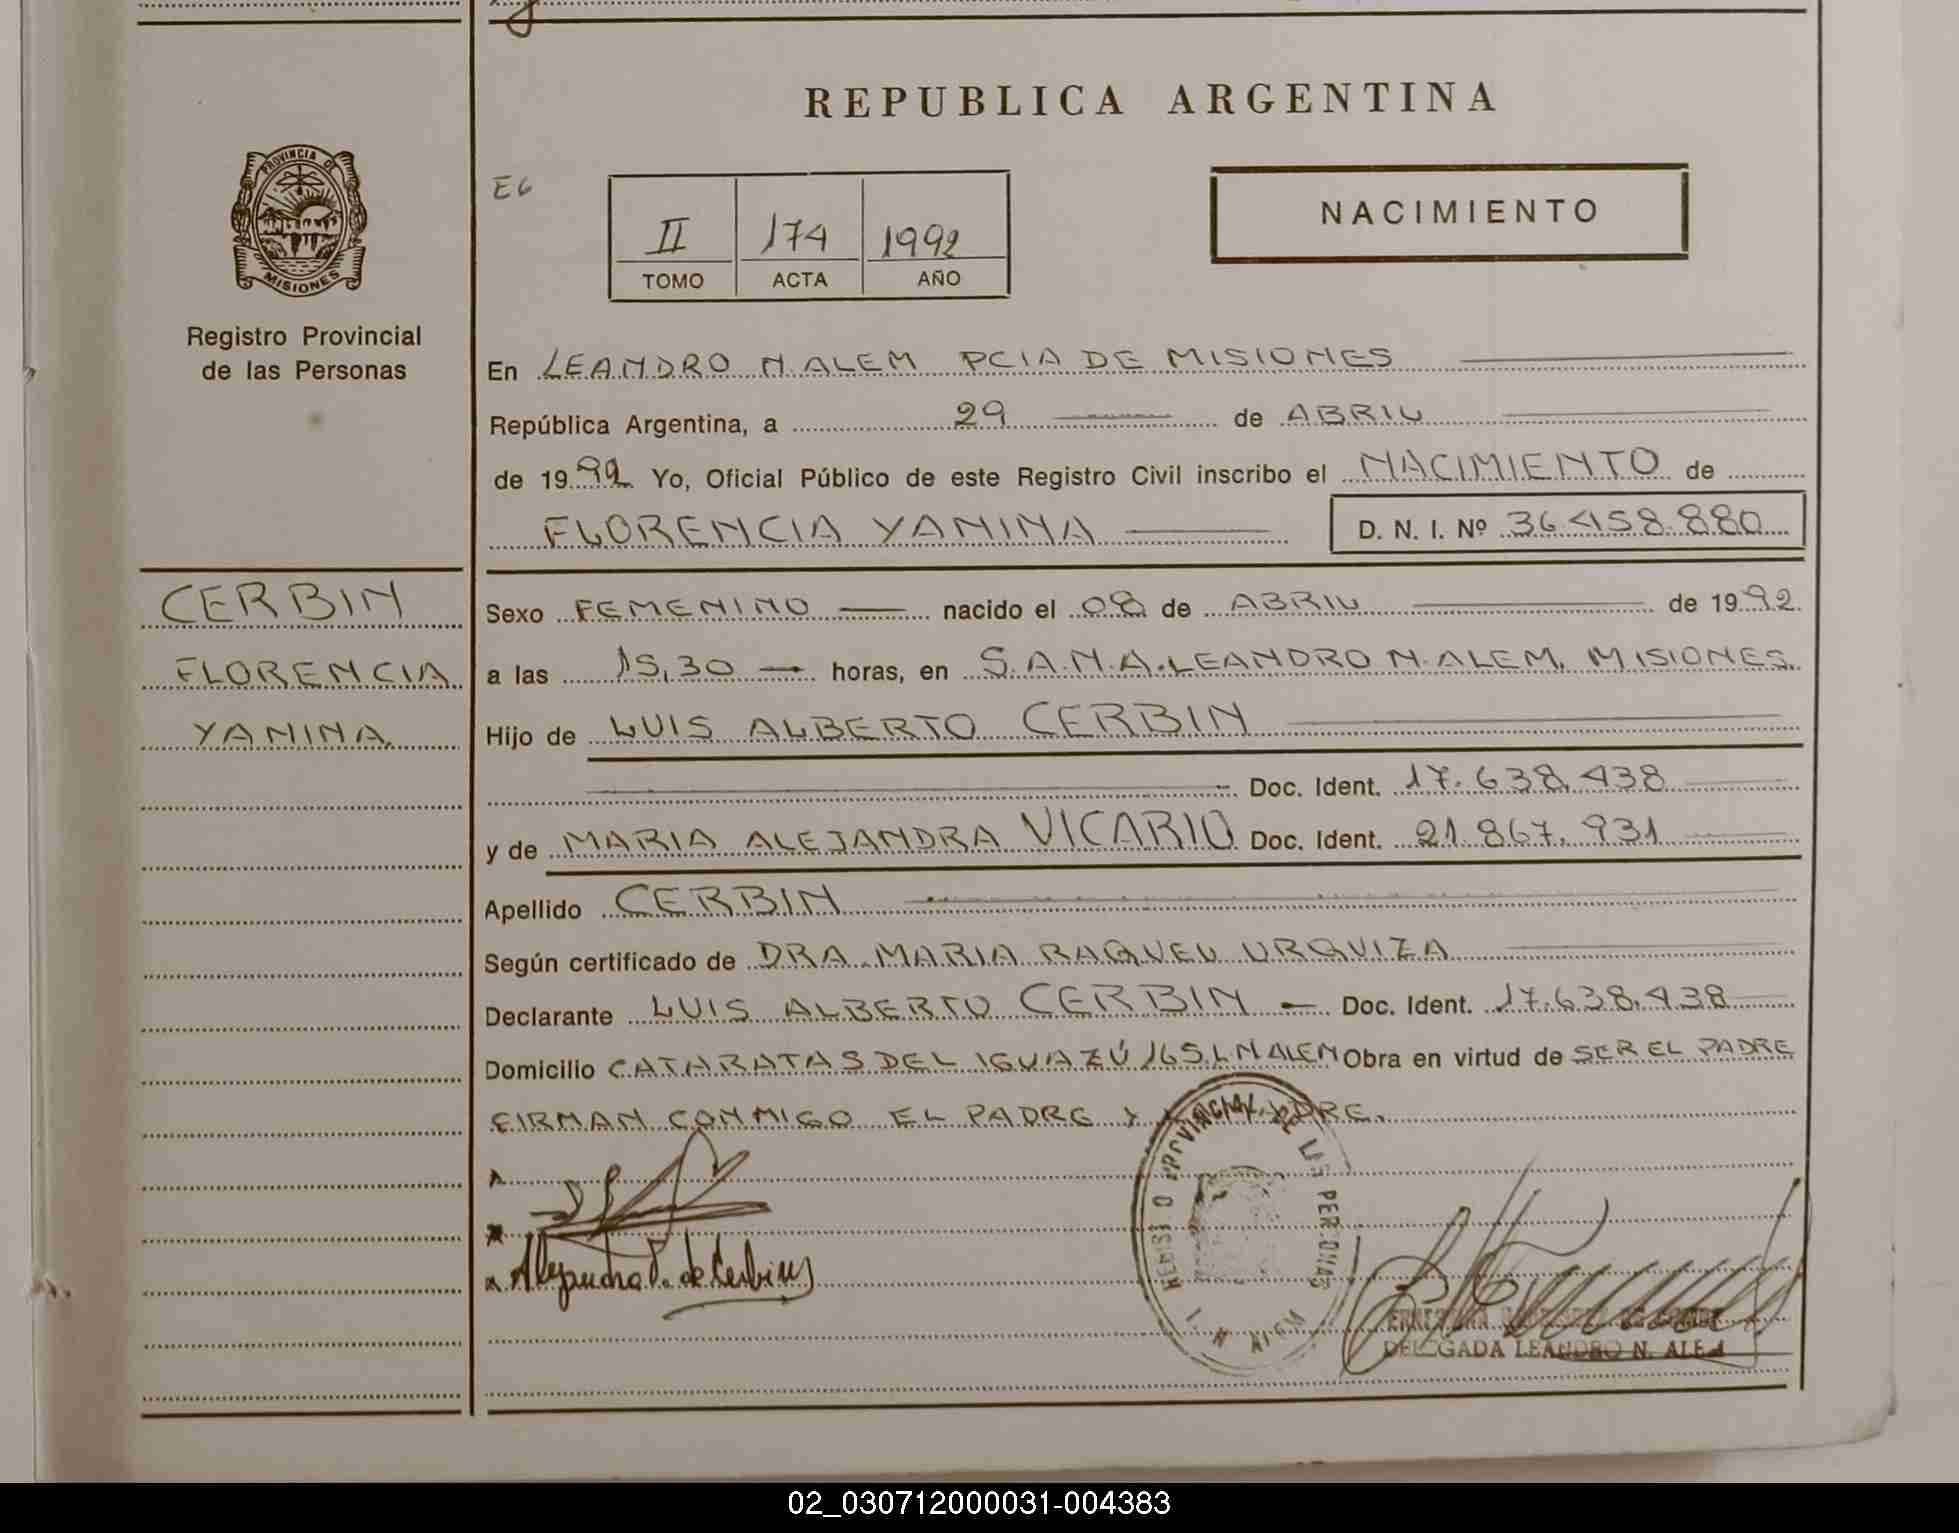 REPUBLICA ARGENTINA
PROVINCIA DE MISIONES
Registro Provincial
de las Personas
E6
II 174 1992
TOMO ACTA AÑO
NACIMIENTO
En LEANDRO N. ALEM PCIA DE MISIONES
República Argentina, a 29 de ABRIL
de 1992 Yo, Oficial Público de este Registro Civil inscribo el NACIMIENTO de
FLORENCIA YANINA D. N. I. Nº 36.458.880
CERBIN
FLORENCIA
YANINA
Sexo FEMENINO nacido el 08 de ABRIL de 1992
a las 15,30 horas, en S.A.N.A. LEANDRO N. ALEM, MISIONES.
Hijo de LUIS ALBERTO CERBIN
Doc. Ident. 17.638.438
y de MARIA ALEJANDRA VICARIO Doc. Ident. 21.867.931
Apellido CERBIN
Según certificado de DRA. MARIA RAQUEL URQUIZA
Declarante LUIS ALBERTO CERBIN Doc. Ident. 17.638.438
Domicilio CATARATAS DEL IGUAZÚ 165 L N ALEM Obra en virtud de SER EL PADRE
FIRMAN CONMIGO EL PADRE Y
REGISTRO PROVINCIAL DE LAS PERSONAS
L. N. ALEM
Alejandra V. de Cerbin
DELEGADA LEANDRO N. ALEM
02_030712000031-004383